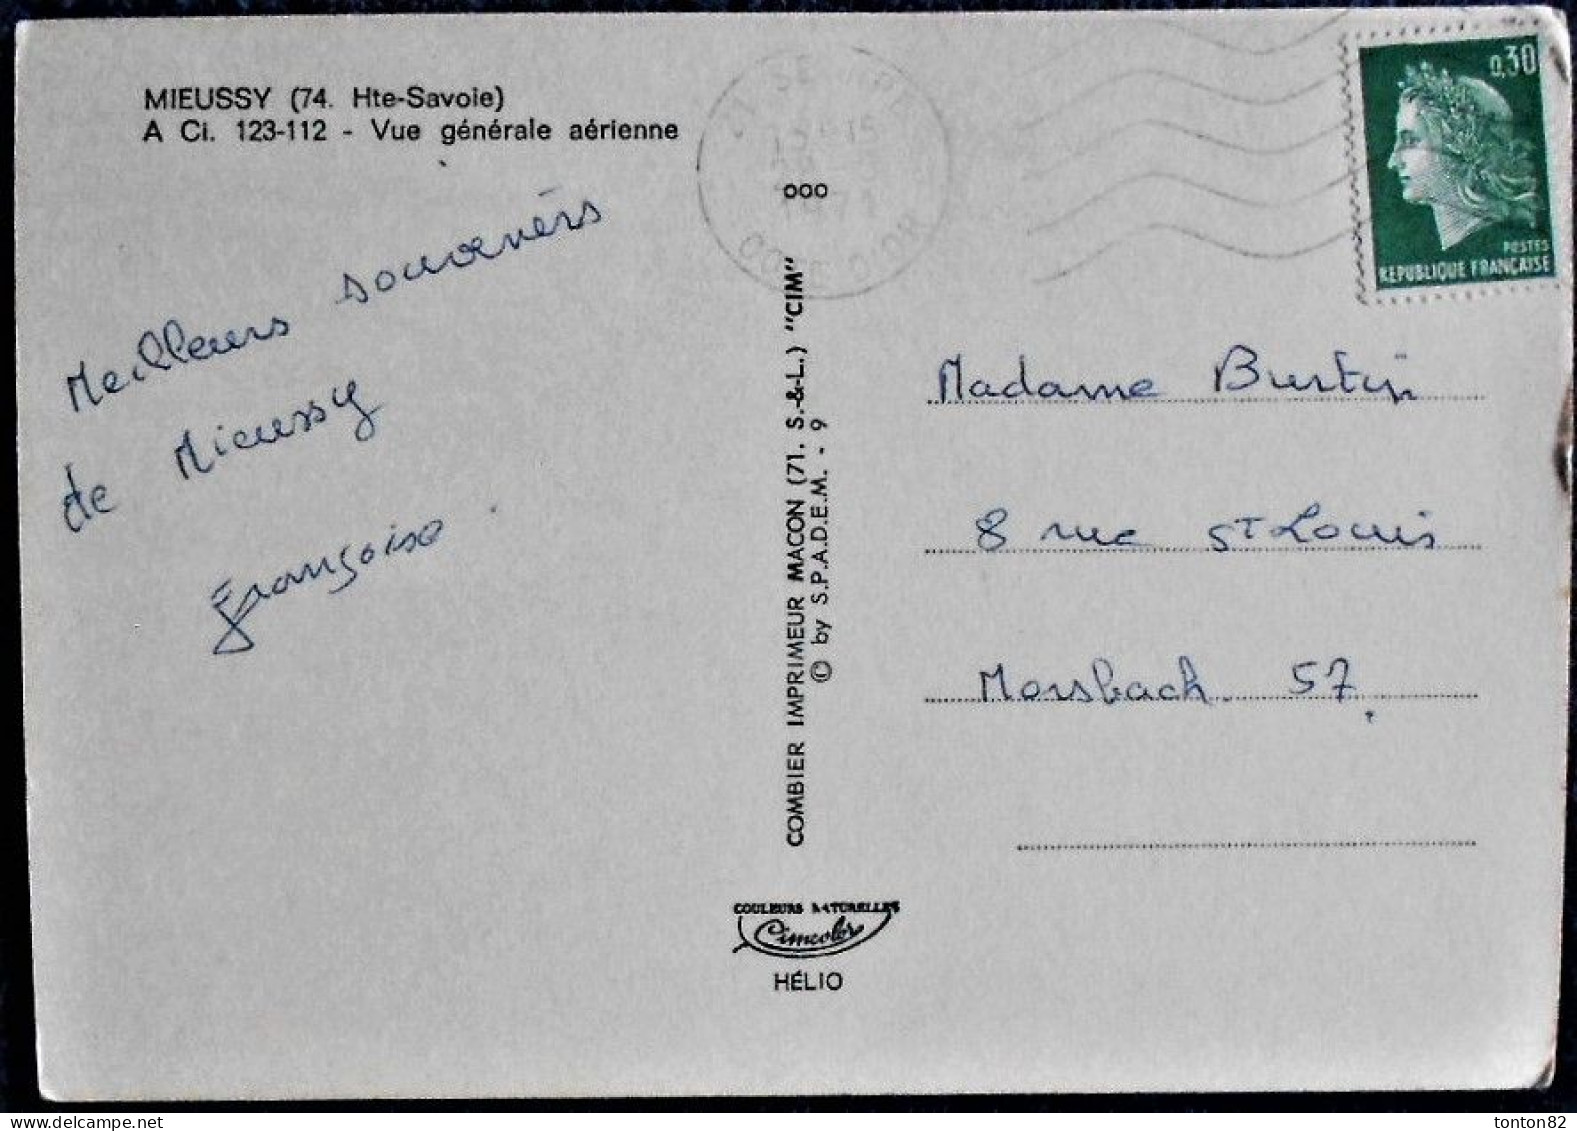 MIEUSSY (74. Hte-Savoie)
A Ci. 123-112 - Vue générale aérienne
Meilleurs souvenirs
de Mieussy
Françoise.
COMBIER IMPRIMEUR MACON (71. S.-&-L.) "CIM"
© by S.P.A.D.E.M. - 9
COULEURS NATURELLES
Cimcolor
HÉLIO
15
1971
COTE D'OR
0,30
POSTES
REPUBLIQUE FRANÇAISE
Madame Burtin
8 rue St Louis
Morsbach. 57.
tonton82